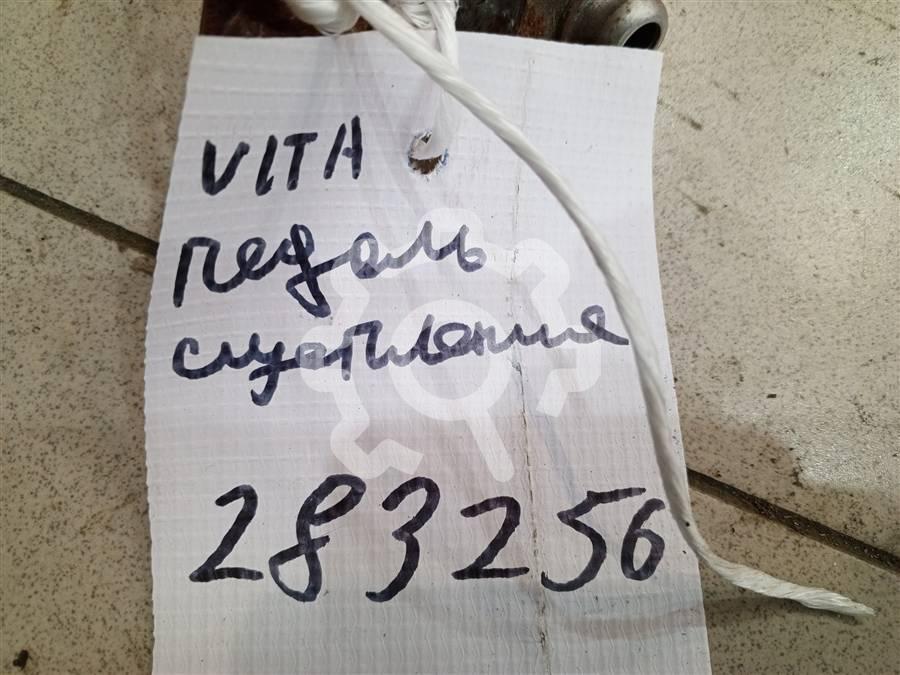 VITA
педаль
сцепления
283256